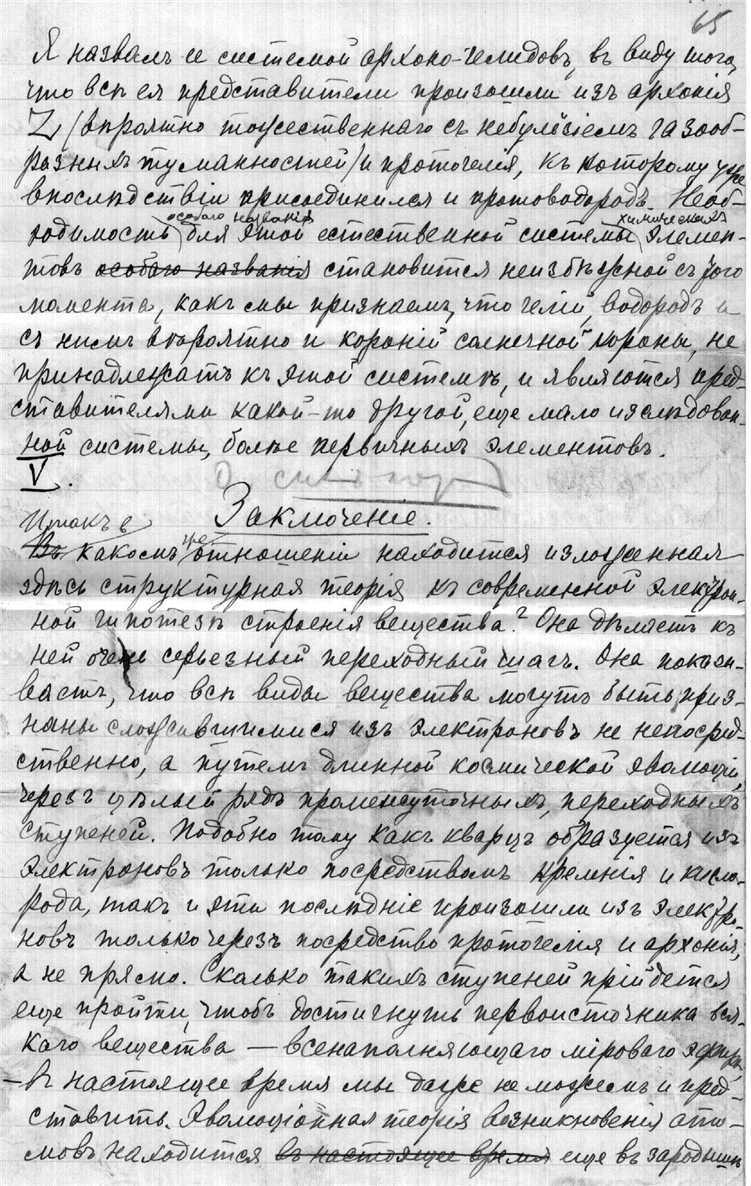 65
Я назвалъ ее системой архоно-гелидовъ, въ виду того,
что всѣ ея представители произошли изъ архонія
Z /вѣроятно тождественнаго съ небуліземъ газооб-
разныхъ туманностей/ и протогелія, къ которому уже
впослѣдствіи присоединился и протоводородъ. Необ-
особаго названія химическихъ
ходимость для этой естественной системы элемен-
товъ особаго названія становится неизбѣжной съ того
момента, какъ мы признаемъ, что гелій, водородъ и
съ ними вѣроятно и короній солнечной короны, не
принадлежатъ къ этой системѣ, и являются пред-
ставителями какой-то другой, еще мало изслѣдован-
ной системы, болѣе первичныхъ элементовъ.
V.
Заключеніе.
Итакъ въ
Въ какомъ же отношеніи находится изложенная
здѣсь структурная теорія къ современной электрон-
ной гипотезѣ строенія вещества? Она дѣлаетъ къ
ней очень серьезный переходный шагъ. Она показы-
ваетъ, что всѣ виды вещества могутъ быть приз-
наны сложившимися изъ электроновъ не непосред-
ственно, а путемъ длинной космической эволюціи,
черезъ цѣлый рядъ промежуточныхъ, переходныхъ
ступеней. Подобно тому какъ кварцъ образуется изъ
электроновъ только посредствомъ кремнія и кисло-
рода, такъ и эти послѣдніе произошли изъ электро-
новъ только черезъ посредство протогелія и архонія,
а не прямо. Сколько такихъ ступеней прійдется
еще пройти, чтобъ достигнуть первоисточника вся-
каго вещества — всенаполняющаго мірового эфира,
— въ настоящее время мы даже не можемъ и пред-
ставить. Эволюціонная теорія возникновенія ато-
мовъ находится въ настоящее время еще въ зародышѣ